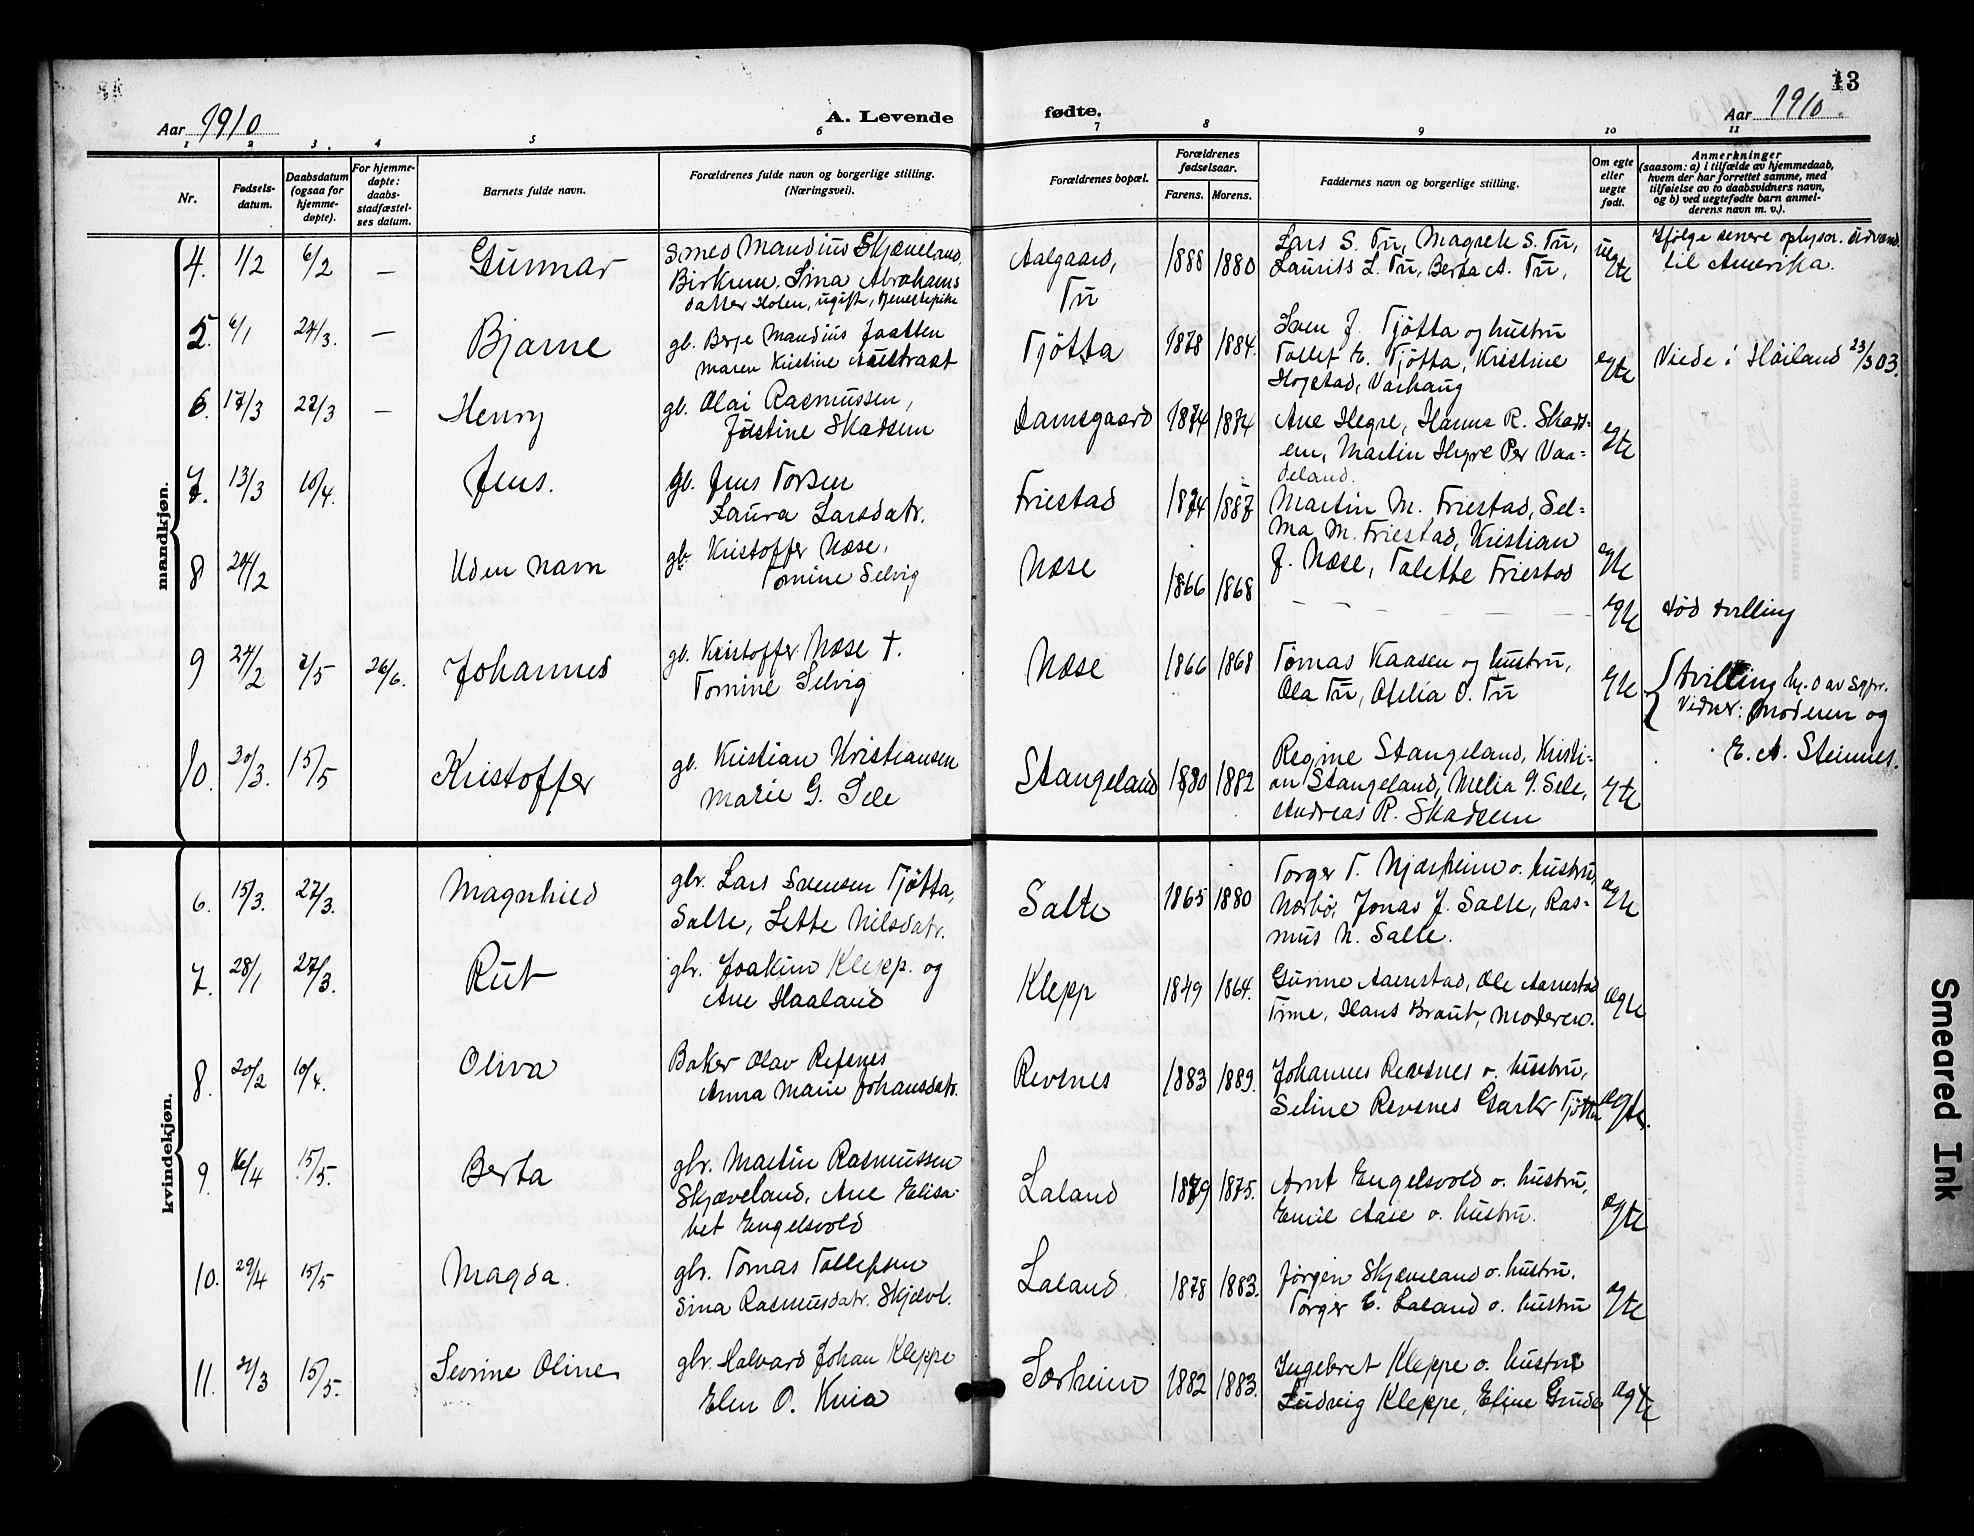 13
Aar 1910
A. Levende fødte.
Aar 1910.
1 2 3. 4 5 6 7 8 9 10 11
Nr.
Fødsels-
datum.
Daabsdatum
(ogsaa for
hjemme-
døpte).
For hjemme-
døpte:
daabs-
stadfæstel-
ses datum.
Barnets fulde navn.
Forældrenes fulde navn og borgerlige stilling.
(Næringsvei).
Forældrenes bopæl.
Forældrenes
fødselsaar.
Farens. Morens.
Faddernes navn og borgerlige stilling.
Om egte
eller
uegte
født.
Anmerkninger
(saasom: a) i tilfælde av hjemmedaab,
hvem der har forrettet samme, med
tilføielse av to daabsvidners navn,
og b) ved uegtefødte barn anmel-
derens navn m. v.).
mandkjøn.
4. 1/2 6/2 — Gunnar
Smed Mandius Skjæveland,
Birkrem, Sina Abrahams
datter Holen, ugift, tjenestepike
Aalgaard,
Tu
1888 1880
Lars S. Tu, Magrete S. Tu,
Laurits L. Tu, Berta A. Tu,
uegte
Ifølge senere oplysn. utvand.
til Amerika.
5. 6/1 24/3. — Bjarne
gb. Berje Mandius Jaatten
Maren Kristine Austraat
Tjøtta
1878 1884.
Sven J. Tjøtta og hustru
Tollef E. Tjøtta, Kristine
Hogstad, Varhaug
egte
Viede i Høiland 23/3 03.
6. 17/3 27/3 — Henry
gb. Olai Rasmussen,
Justine Skadsem
Damsgaard
1874 1874
Ane Hegre, Hanna R. Skads=
em, Martin Hegre Per Vaa=
deland.
egte
7. 13/3 10/4. Jens.
gb. Jens Torsen
Laura Larsdatr.
Friestad
1874 1887
Martin M. Friestad, Sel=
ma M. Friestad, Kristian
J. Næse, Talette Friestad
egte
8 24/2 Uden navn
gb. Kristoffer Næse,
Tomine Selvig
Næse
1866 1868
— — — — —
egte
død tvilling
9 24/2 7/5 26/6. Johannes
gb. Kristoffer Næse †.
Tomine Selvig
Næse
1866 1868
Tomas Kaasen og hustru,
Ola Tu, Otelia O. Tu
egte
tvilling hj. d av sgpr.
Vidner: Moderen og
E. A. Steinnes.
10. 30/3. 15/5 Kristoffer
gb. Kristian Kristiansen
Marie G. Sele
Stangeland
1880 1882
Regine Stangeland, Kristi-
an Stangeland, Melia G. Sele,
Andreas R. Skadsem
egte
kvindekjøn.
6. 15/3. 27/3. Magnhild
gbr. Lars Svensen Tjøtta,
Salte, Lette Nilsdatr.
Salte
1865 1880
Torger T. Njærheim o. hustru,
Nærbø, Jonas J. Salte, Ras=
mus N. Salte.
egte
7. 28/1 27/3. Rut
gbr. Joakim Klepp. og
Ane Haaland
Klepp
1849 1864.
Gunne Aanestad, Ole Aanestad
Time, Hans Braut, Moderen.
egte
8. 20/2 10/4. Oliva
Baker Olav Refsnes
Anna Marie Johansdatr.
Revsnes
1883 1889.
Johannes Revsnes o. hustru,
Seline Revsnes Tjøtta
egte.
9. 16/4 15/5. Berta
gbr. Martin Rasmussen
Skjæveland, Ane Elisa-
bet Engelsvold
Laland
1879 1875.
Arnt Engelsvold o. hustru,
Emil Aase o. hustru.
egte
10. 29/4 15/5 Magda.
gbr. Tomas Tollefsen
Sina Rasmusdatr. Skjævl.
Laland
1878 1883.
Jørgen Skjæveland o. hustru.
Torger E. Laland o. hustru
egte
11. 21/3 15/5. Sevrine Oline
gbr. Halvard Johan Kleppe
Elen O. Kvia
Sørheim
1882 1883.
Ingebret Kleppe o. hustru
Ludvig Kleppe, Eline Grude
egte
Smeared Ink